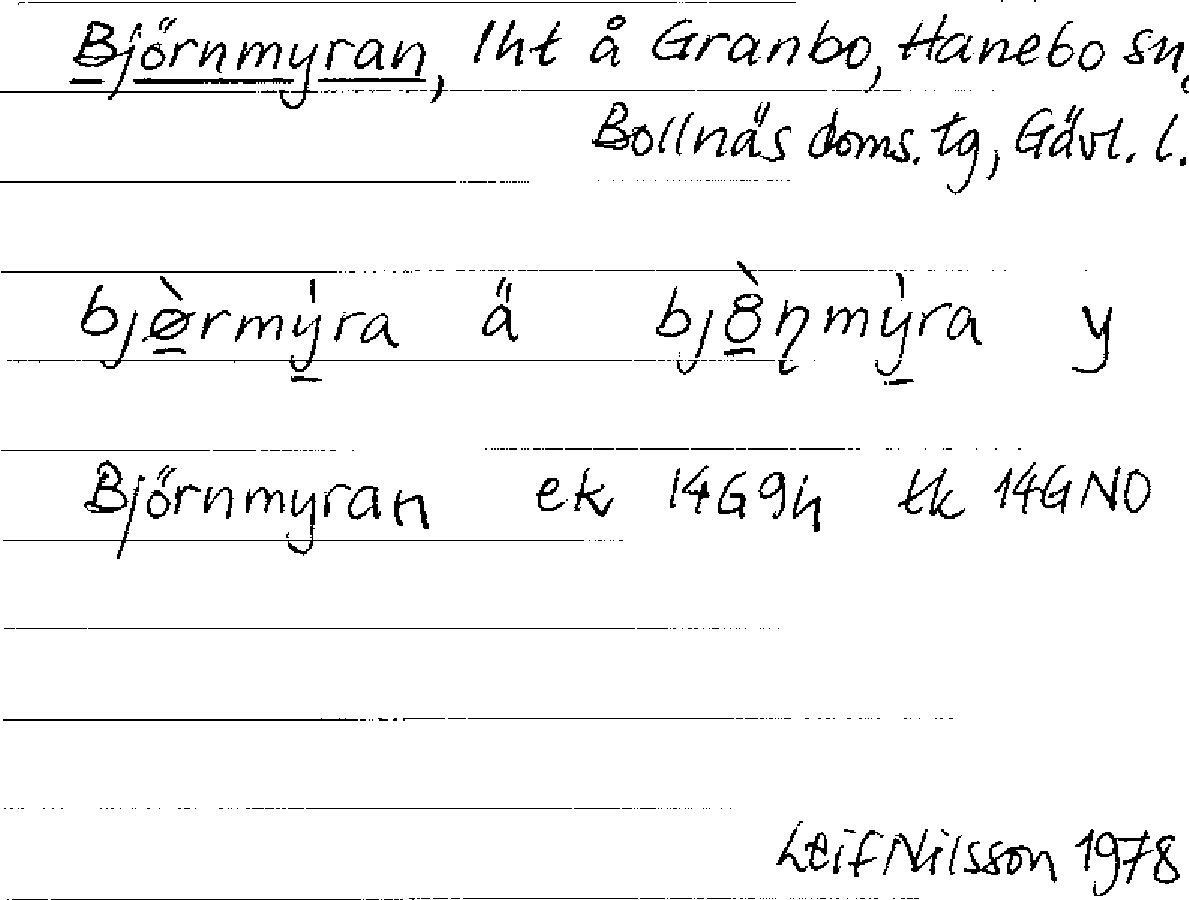 Björnmyran, lht å Granbo, Hanebo sn,
Bollnäs doms. tg, Gävl. l.
bjø̲̀rmy̲̍ra ä bjö̲̀ŋmy̲̍ra y
Björnmyran ek 14G9h tk 14GNO
Leif Nilsson 1978